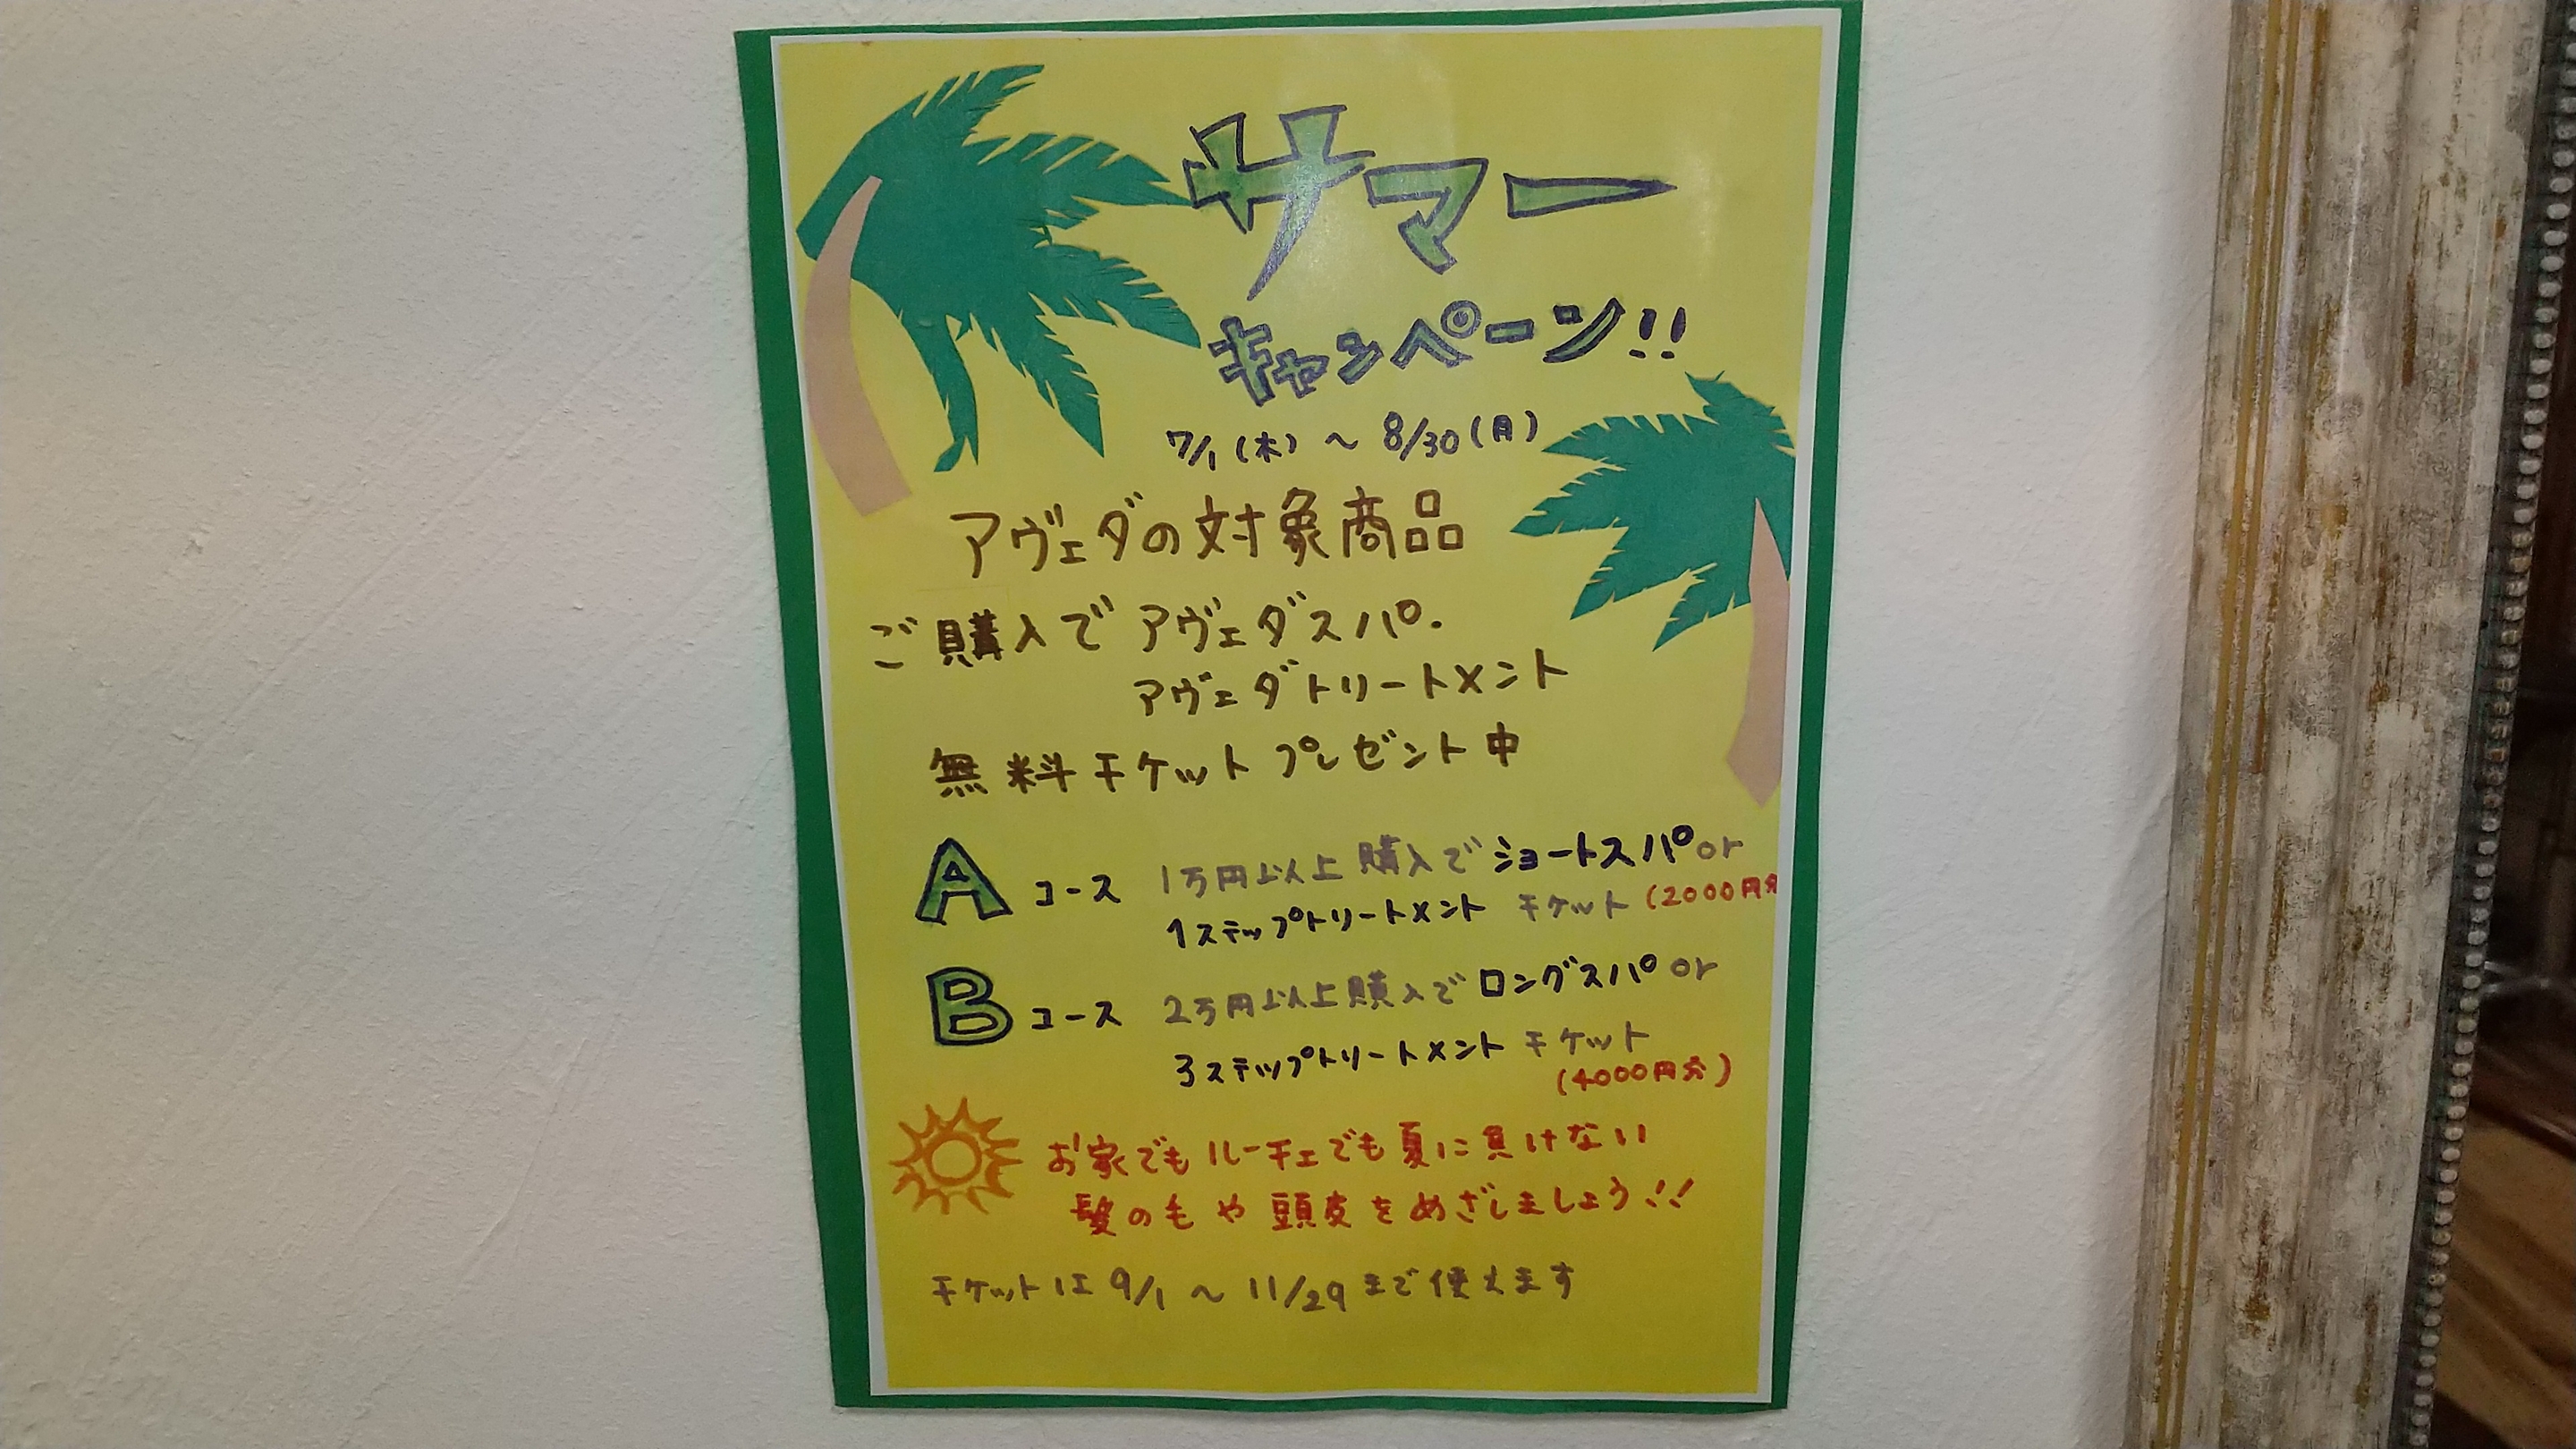 サマー
キャンペーン!!
7/1(木)～8/30(月)
アヴェダの対象商品
ご購入でアヴェダスパ.
アヴェダトリートメント
無料チケットプレゼント中
Aコース 1万円以上購入でショートスパor
1ステップトリートメント チケット(2000円分
Bコース 2万円以上購入でロングスパor
3ステップトリートメント チケット
(4000円分)
お家でもルーチェでも夏に負けない
髪の毛や頭皮をめざしましょう!!
チケットは9/1～11/29まで使えます